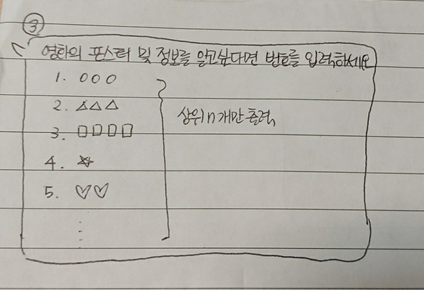 ③
영화의 포스터 및 정보를 알고싶다면 번호를 입력하세요
1. ○○○
2. △△△
3. □□□□
4. ☆
5. ♡♡
상위 n개만 출력